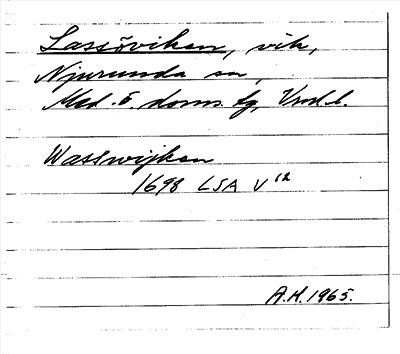 Lassöviken, vik,
Njurunda sn,
Med. ö. doms. tg, Vnd. l.
Wasswijken
1698 LSA V 12
A.H. 1965.